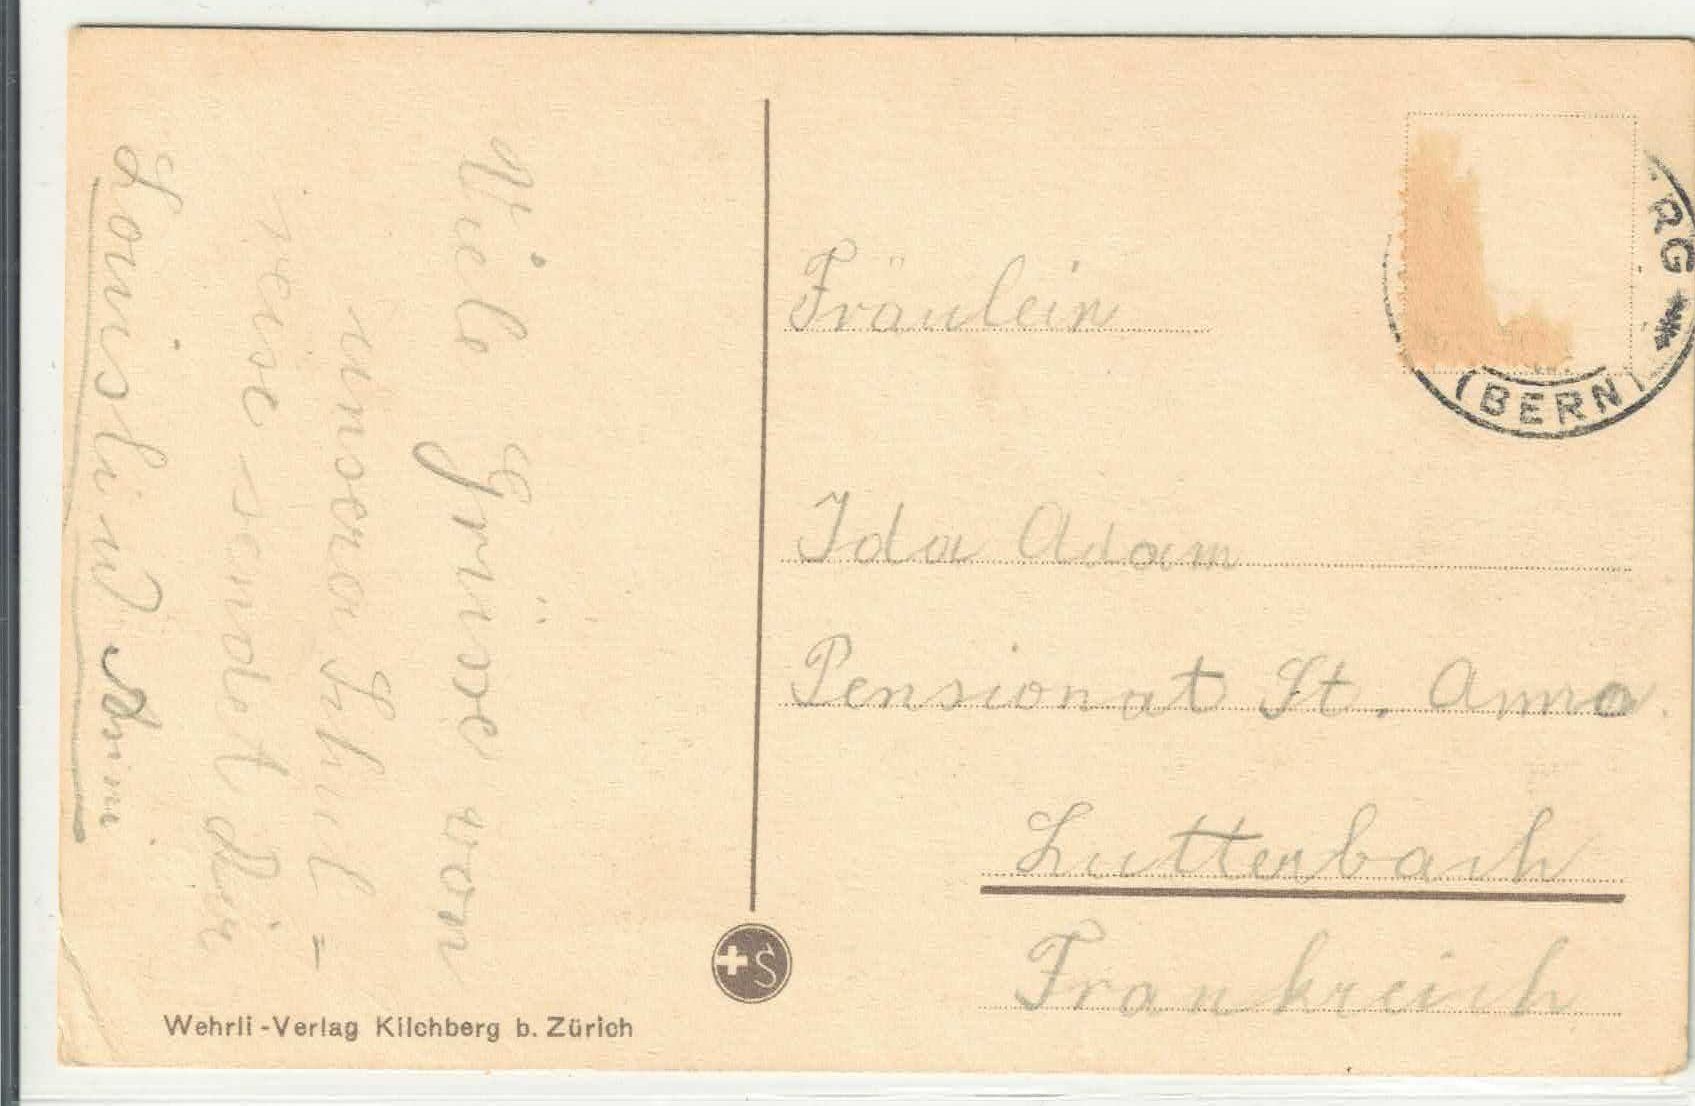 Viele Grüsse von
unserer Schul =
reise sendet dir
Louisli u.
Fräulein
Ida Adam
Pensionat St. Anna
Lutterbach
Frankreich
RG
(BERN)
+S
Wehrli-Verlag Kilchberg b. Zürich